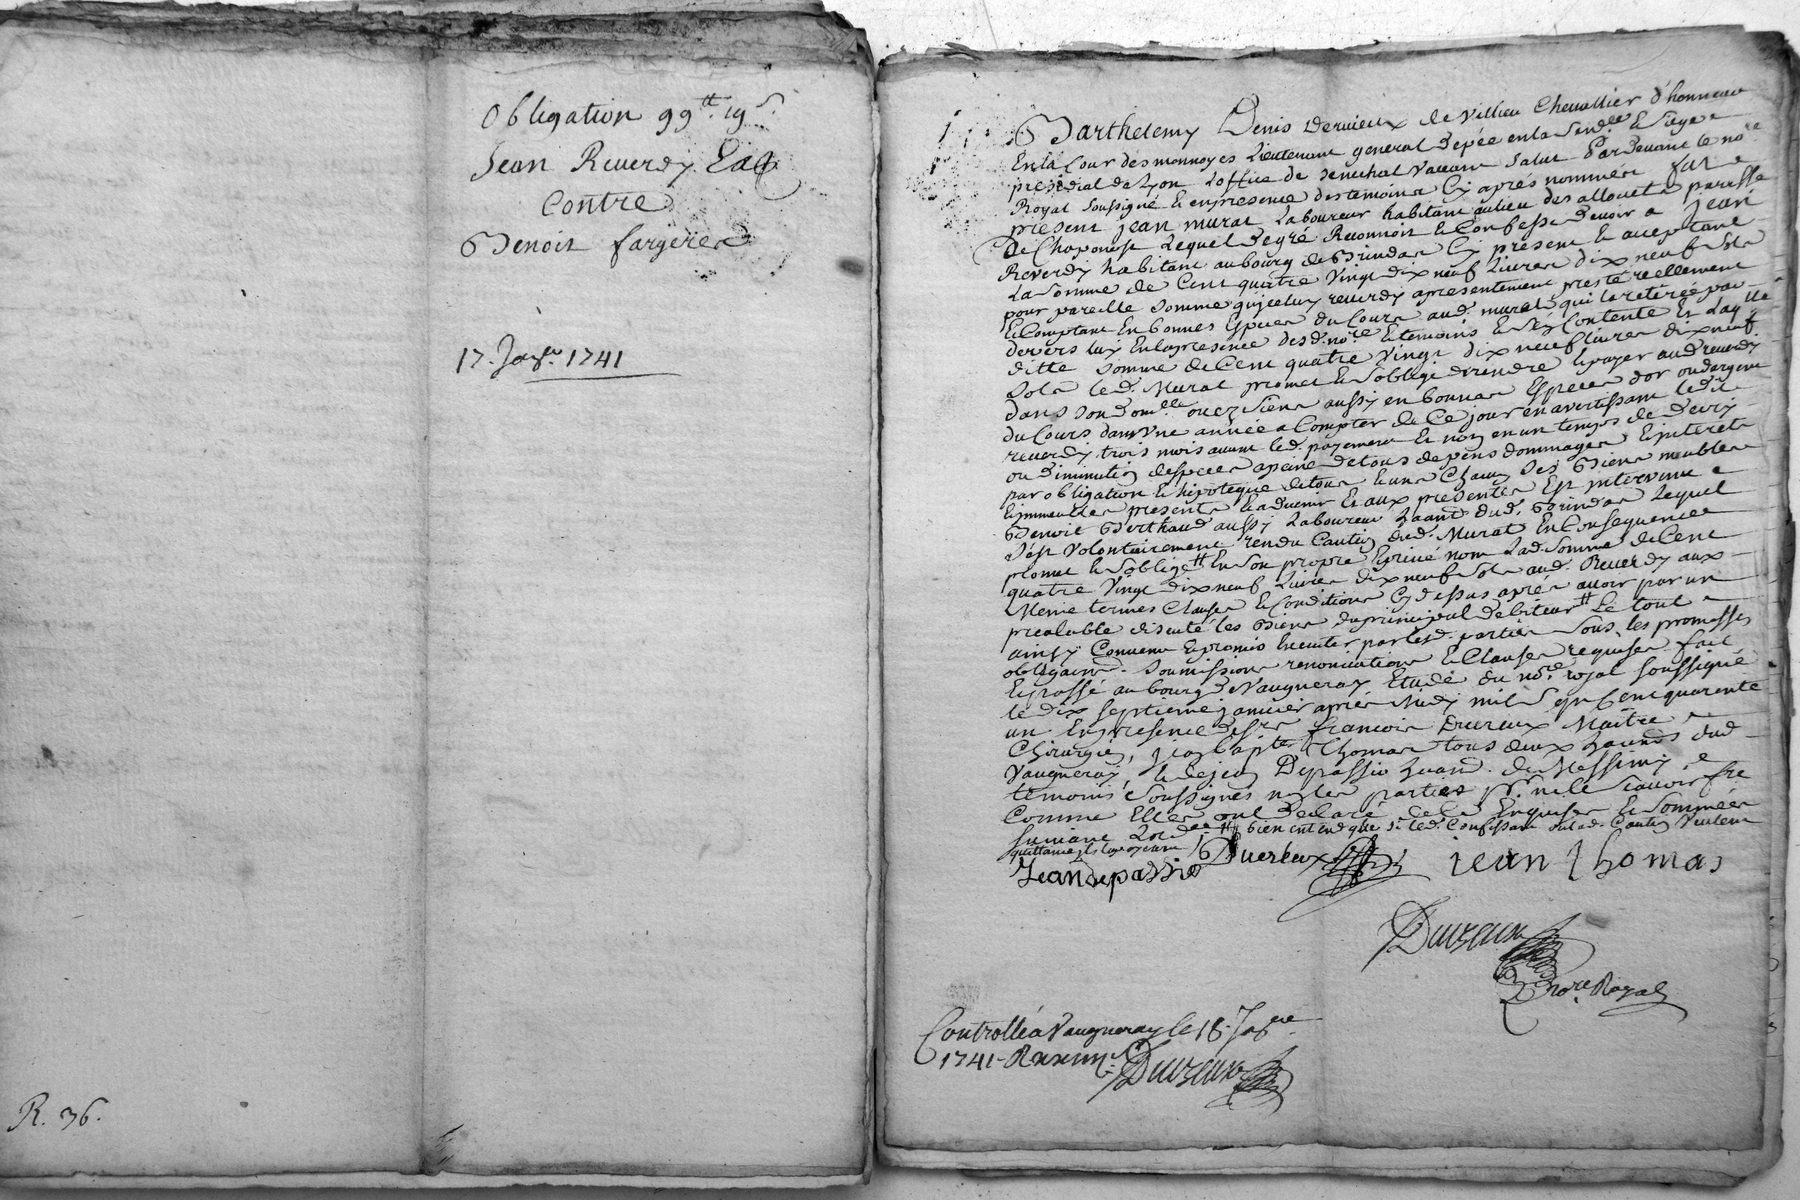 Obligation 99tt. 19s.
Jean Reverdy
Contre
Benoit fargere
17. Janer. 1741
R. 36.
Barthelemy Denis Dervieux de Villieu Chevallier d'honneur
En la Cour des monnoyes Lieutenant general depée en la Sendée & Siege
presidial de Lyon Loffice de Senechal Vacant Salut Pardevant le nore
Royal soussigné & en presence des temoins Cy aprés nommés fut
present jean murat Laboureur habitant au lieu des allouets parroisse
De Chaponost Lequel de gré Reconnoit & Confesse devoir a jean
Reverdy habitant au bourg de Brindas Cy present & acceptant
La Somme de Cent quatre Vingt dix neuf Livres dix neuf sols
pour pareille somme qu'jceluy reverdy a presentement presté reellement
& Comptant En bonnes Especes du Cours aud. murat qui la retirée par
devers luy En la presence desd. nore. & temoins En Content & Laqlle
ditte somme de Cent quatre Vingt dix neuf livres dix neuf
Sols led. Murat promet & Soblige de rendre & payer aud. reverdy
dans Son domlle ou ez Siens aussy en bonnes Especes d'or ou d'argent
du Cours dans Une année a Compter de Ce jour en avertissant ledit
reverdy trois mois avant led. payement & non en un temps de decry
ou diminution despeces apeine de tous depens dommages & interets
par obligation & hipoteque de tous & uns Chacun Ses Biens meubles
& immeubles presents & advenir & aux presentes Est intervenu
Benoit Berthaud aussy Laboureur habant dud. Brindas Lequel
Sest Volontairement rendu Caution dud. Murat En Consequence
promet & Soblige tt En Son propre & privé nom Lad. Somme de Cent
quatre Vingt dix neuf Livres dix neuf Sols aud. Reverdy aux
Meme termes Clauses & Conditions Cy dessus aprés avoir par un
prealable discuté les Biens du principal debiteur tt Le tout
ainsy Convenu & promis Executer par lesd. parties Sous les promesses
obligaons. Soumissions renonciations & Clauses requises fait
& passé au bourg de Vaugneray Etude du nore. royal soussigné
le dix septieme janvier aprés Midy mil Sept Cent quarente
un En presence de Sr francois Duvreux Maitre
Chirurgien, jean bapte Thomas tous deux habants dud.
Vaugneray, & de jean Depassio habant. de Messimy
temoins soussignés non les parties pr. ne le Scavoir fre
Comme Elles ont declaré de ce Enquises & Sommées
Suivant Lordce tt bien entendu que Si led. Confessant ou lad. Caution Veulent
Jean depassio Duvreux jean thomas
Duvreux
nore. Royal
Controllé a Vaugneray le 18. Janre
1741
Duvreux